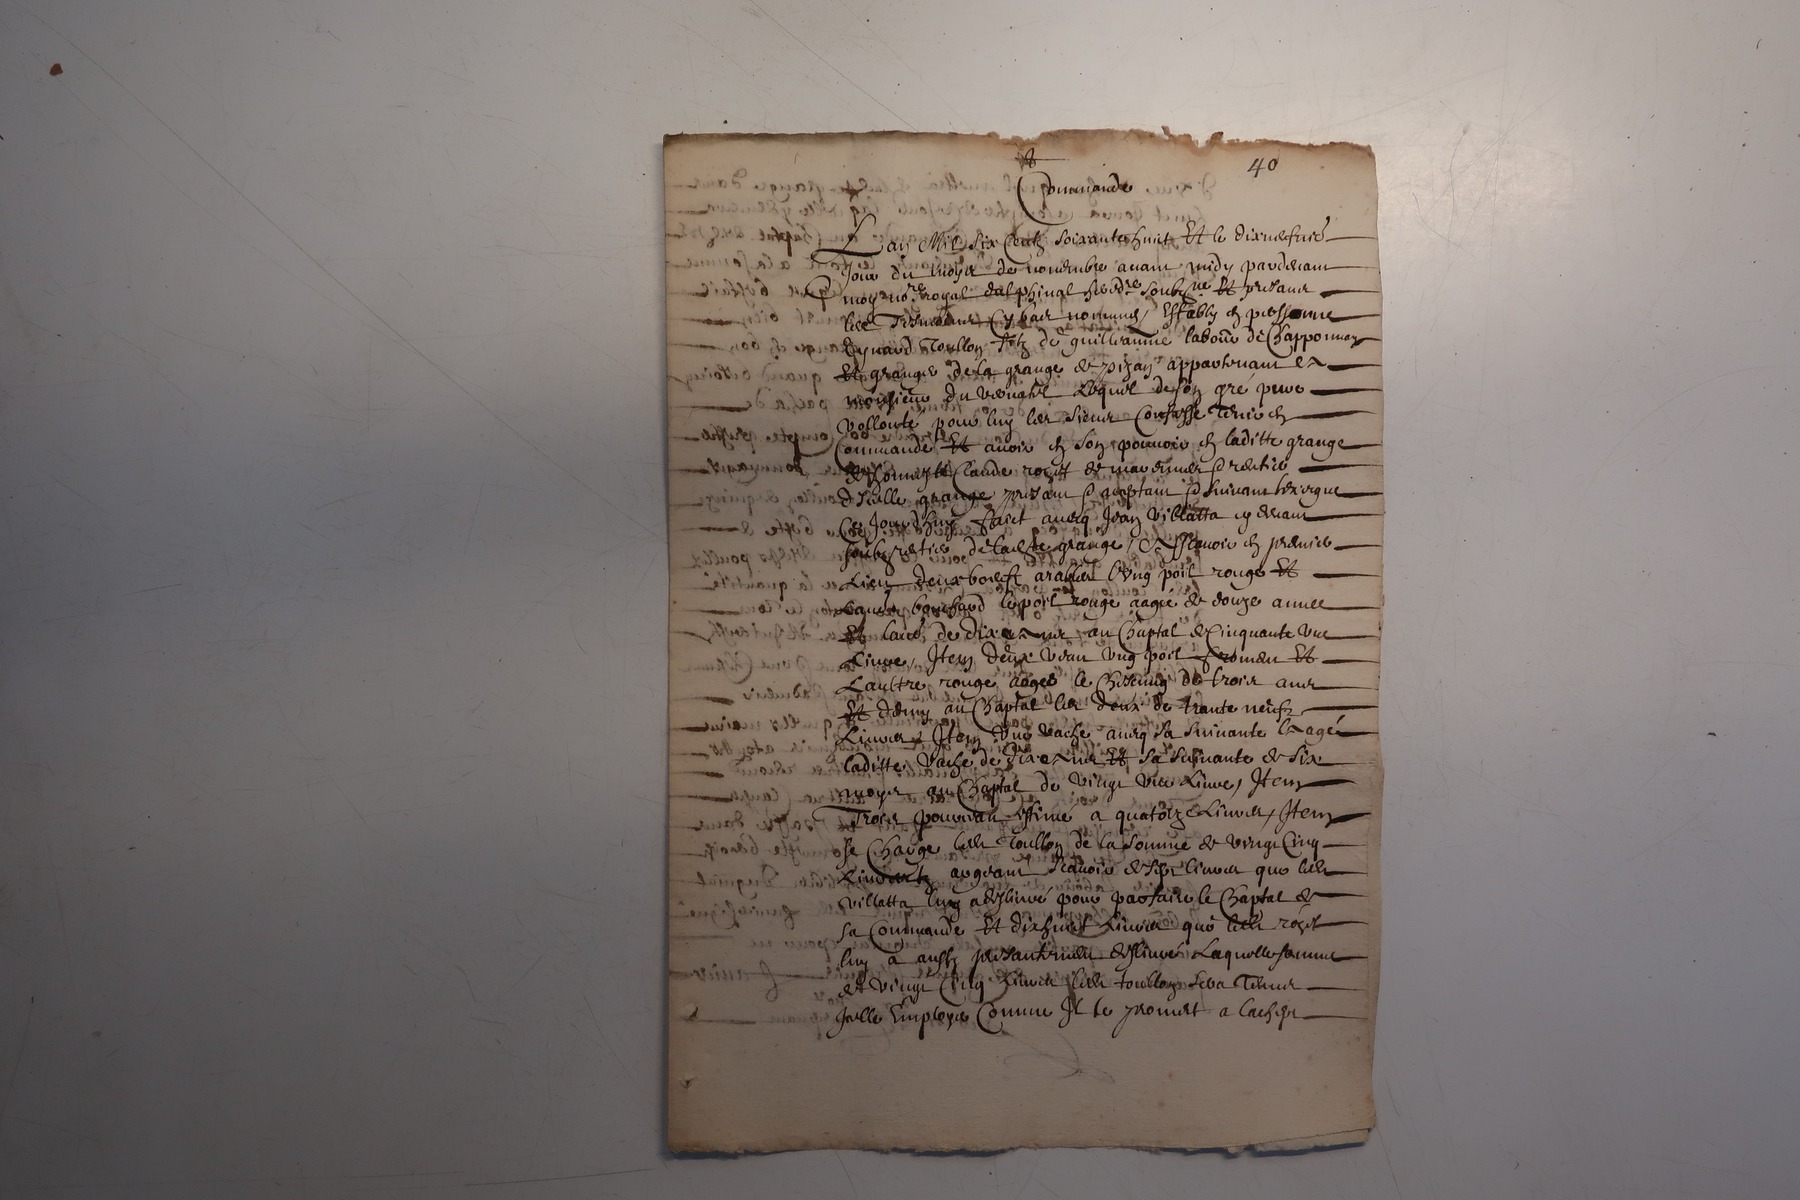 40
Commande
L'an Mil six Centz soixante huict Et le dixneufvie
Jour du moys de novembre avant midy pardevant
moy no.re royal dalphinal heredre soubz.ne Et presans
les Tesmoins Cy bas nommes, Estably en personne
Eynard Toullon filz de guilliaume labour de Chapponnay
Et granger de la grange de appartenant a
monsieur du Lequel de son gré pure
vollonté pour luy les sieurs Confesse Tenir en
Commande Et avoir en son pouvoir en laditte grange
de Claude rozet de rentier
d'icelle grange presant acceptant suivant
Ce Jourdhuy faict avecq Jean Villatta cy devant
soubz rentier de laditte grange, Assavoir en premier
Lieu deux boeufz arables l'ung poil rouge Et
laultre bouchard le poil rouge aagé de douze annes
Et laut de dix ans au Chaptal de Cinquante une
Livre, Item deux veau ung poil fromen Et
Laultre rouge aages le Chescung de trois ans
Et demy au Chaptal les deux de trante neufz
Livres Item Une vache avecq sa suivante aagé
laditte Vache de dix ans Et sa suivante de six
moys au Chaptal de vingt une Livre, Item
Trois pourceau Estimé a quatorze Livres, Item
se Charge ledt Toullon de la somme de vingt Cinq
Livres argeant scavoir de sept livres que ledt
Villatta luy a deslivré pour parfaire le Chaptal de
sa Commande Et dixhuict Livres que ledt rozet
luy a aussy presantemen deslivré Laquelle somme
de vingt Cinq Livres ledt toullon sera Tenu
Icelle Employer Comme Il le promet a lachept